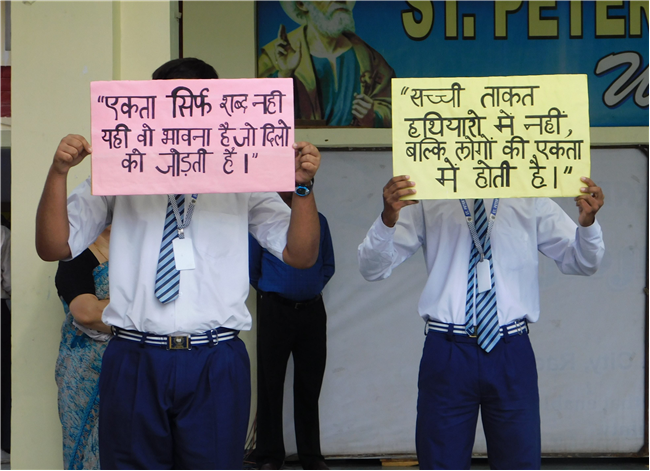 ST. PETER
W
"एकता सिर्फ शब्द नही
यही वो भावना है,जो दिलो
को जोड़ती है।"
"सच्ची ताकत
हथियारो में नहीं,
बल्कि लोगों की एकता
में होती है।"